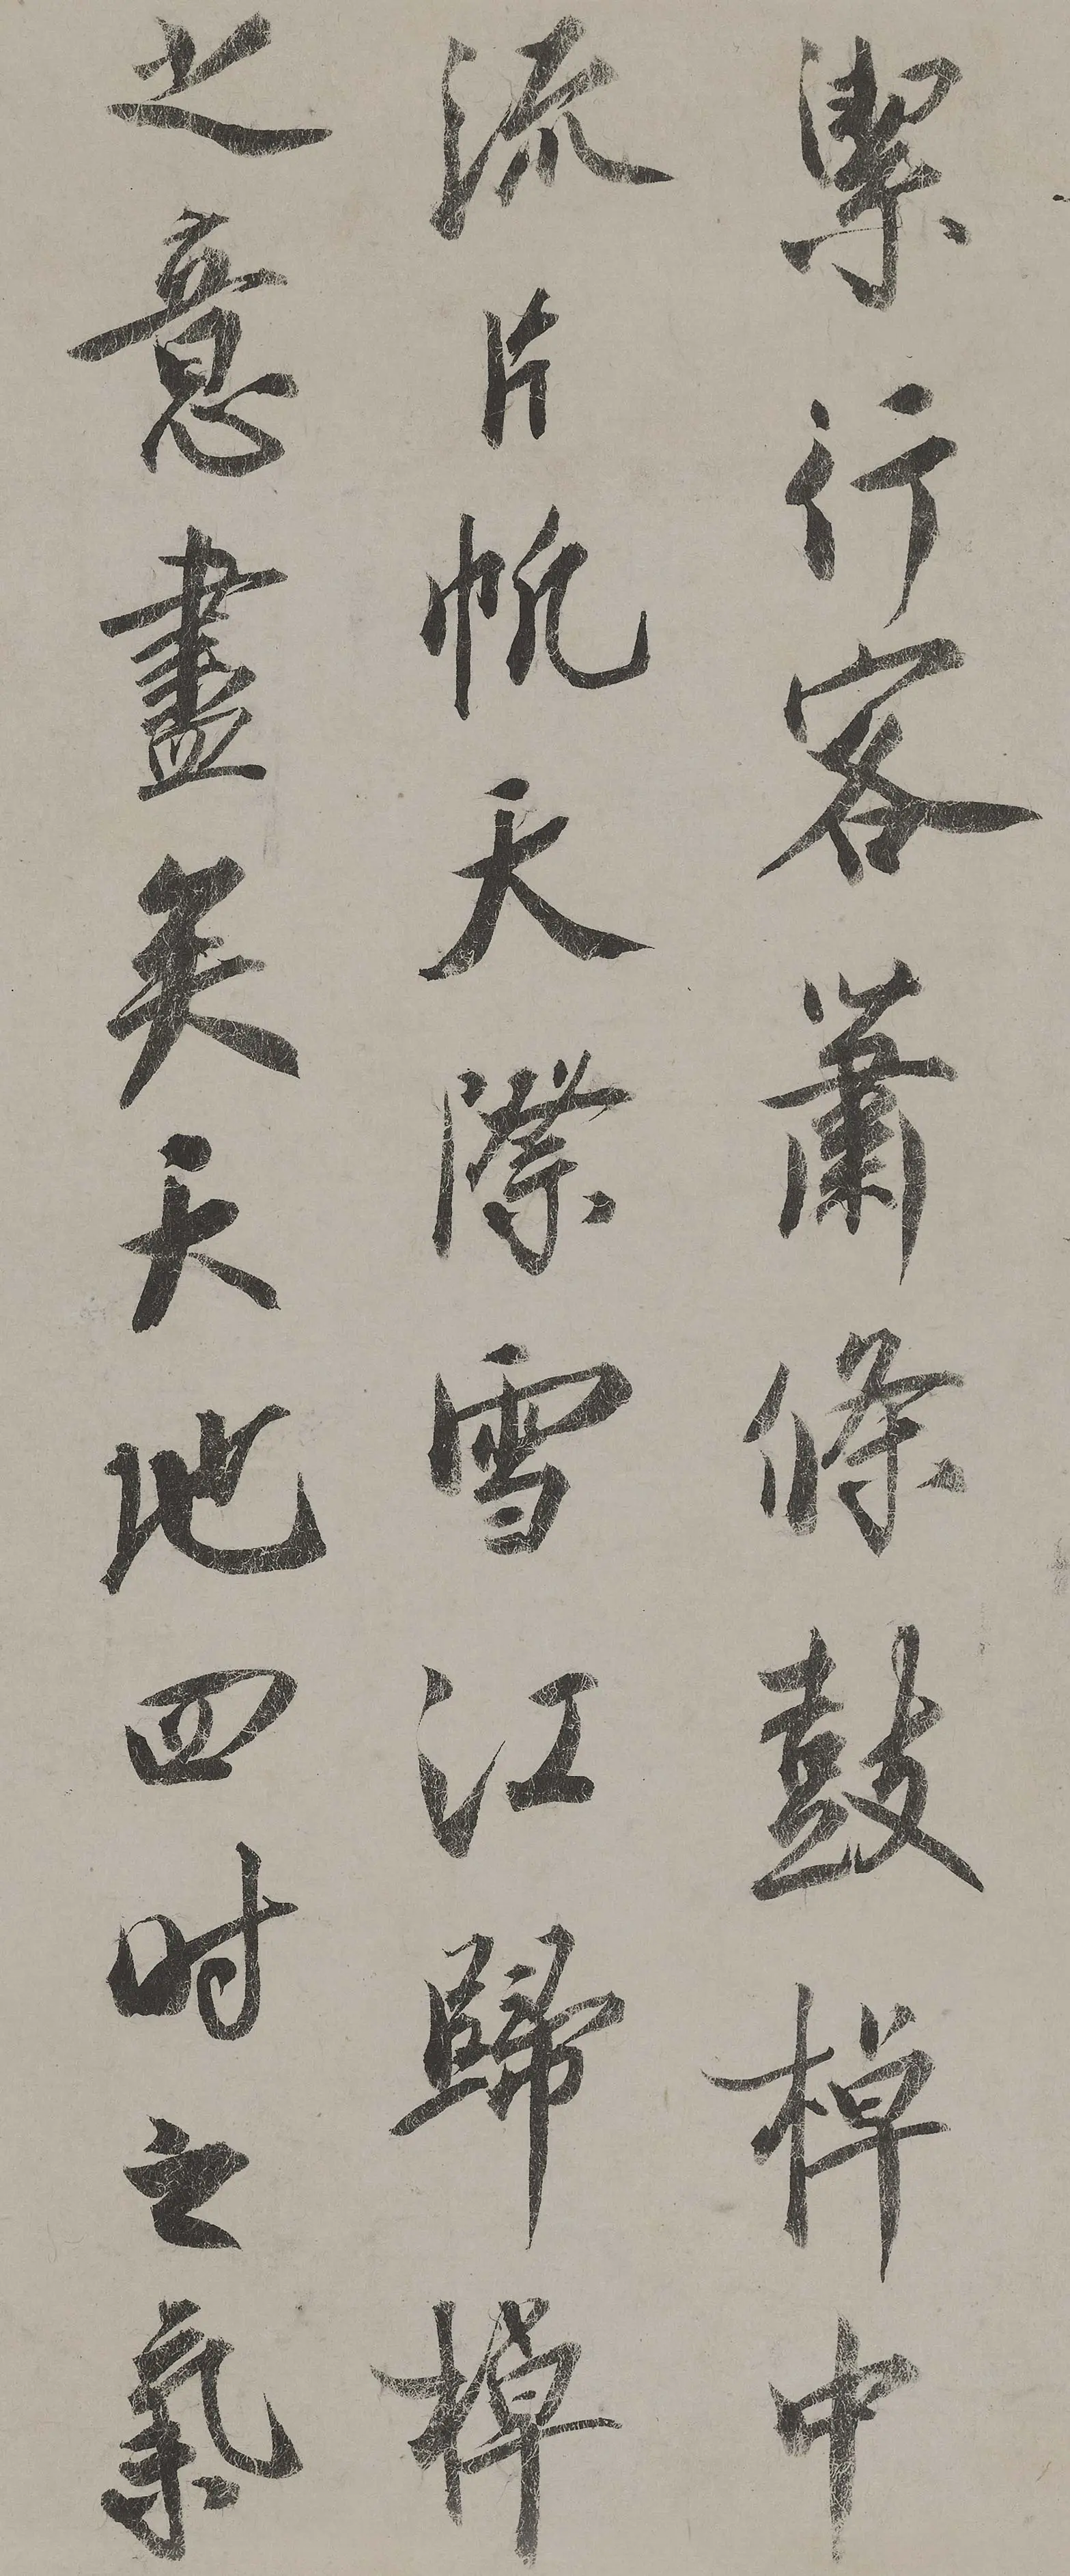 潔行客蕭條鼓棹中
流片帆天際雪江歸棹
之意盡矣天地四时之氣